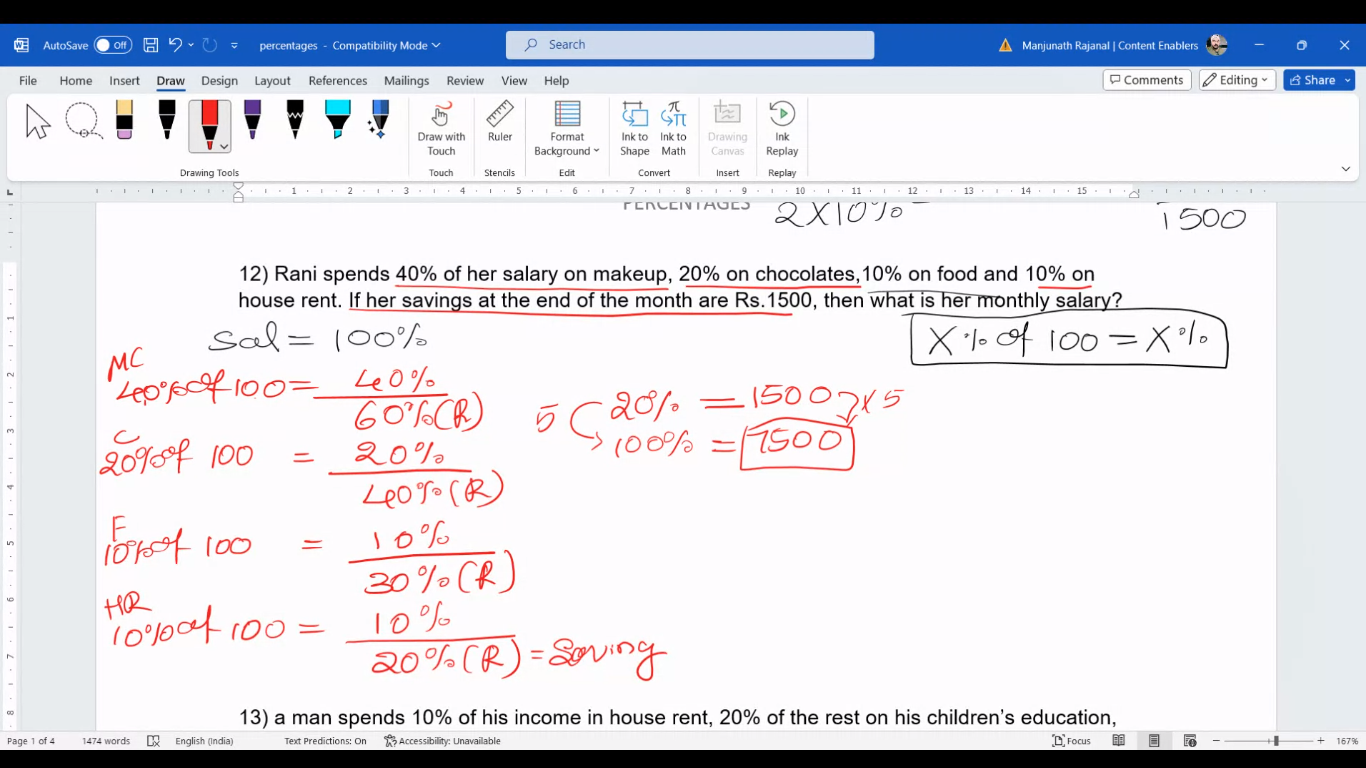 AutoSave Off percentages - Compatibility Mode Search Manjunath Rajanal | Content Enablers
File Home Insert Draw Design Layout References Mailings Review View Help Comments Editing Share
Draw with Touch Ruler Format Background Ink to Shape Ink to Math Drawing Canvas Ink Replay
Drawing Tools Touch Stencils Edit Convert Insert Replay
1 2 3 4 5 6 7 8 9 10 11 12 13 14 15
PERCENTAGES 2X10%= 1500
12) Rani spends 40% of her salary on makeup, 20% on chocolates,10% on food and 10% on
house rent. If her savings at the end of the month are Rs.1500, then what is her monthly salary?
Sal = 100%
X% of 100 = X%
MC
40% of 100 = 40%
60% (R)
20% = 1500 x 5
5 100% = 7500
C
20% of 100 = 20%
40% (R)
F
10% of 100 = 10%
30% (R)
HR
10% of 100 = 10%
20% (R) = Saving
13) a man spends 10% of his income in house rent, 20% of the rest on his children's education,
1 2 3 4 5 6 7 8
Page 1 of 4 1474 words English (India) Text Predictions: On Accessibility: Unavailable Focus 167%